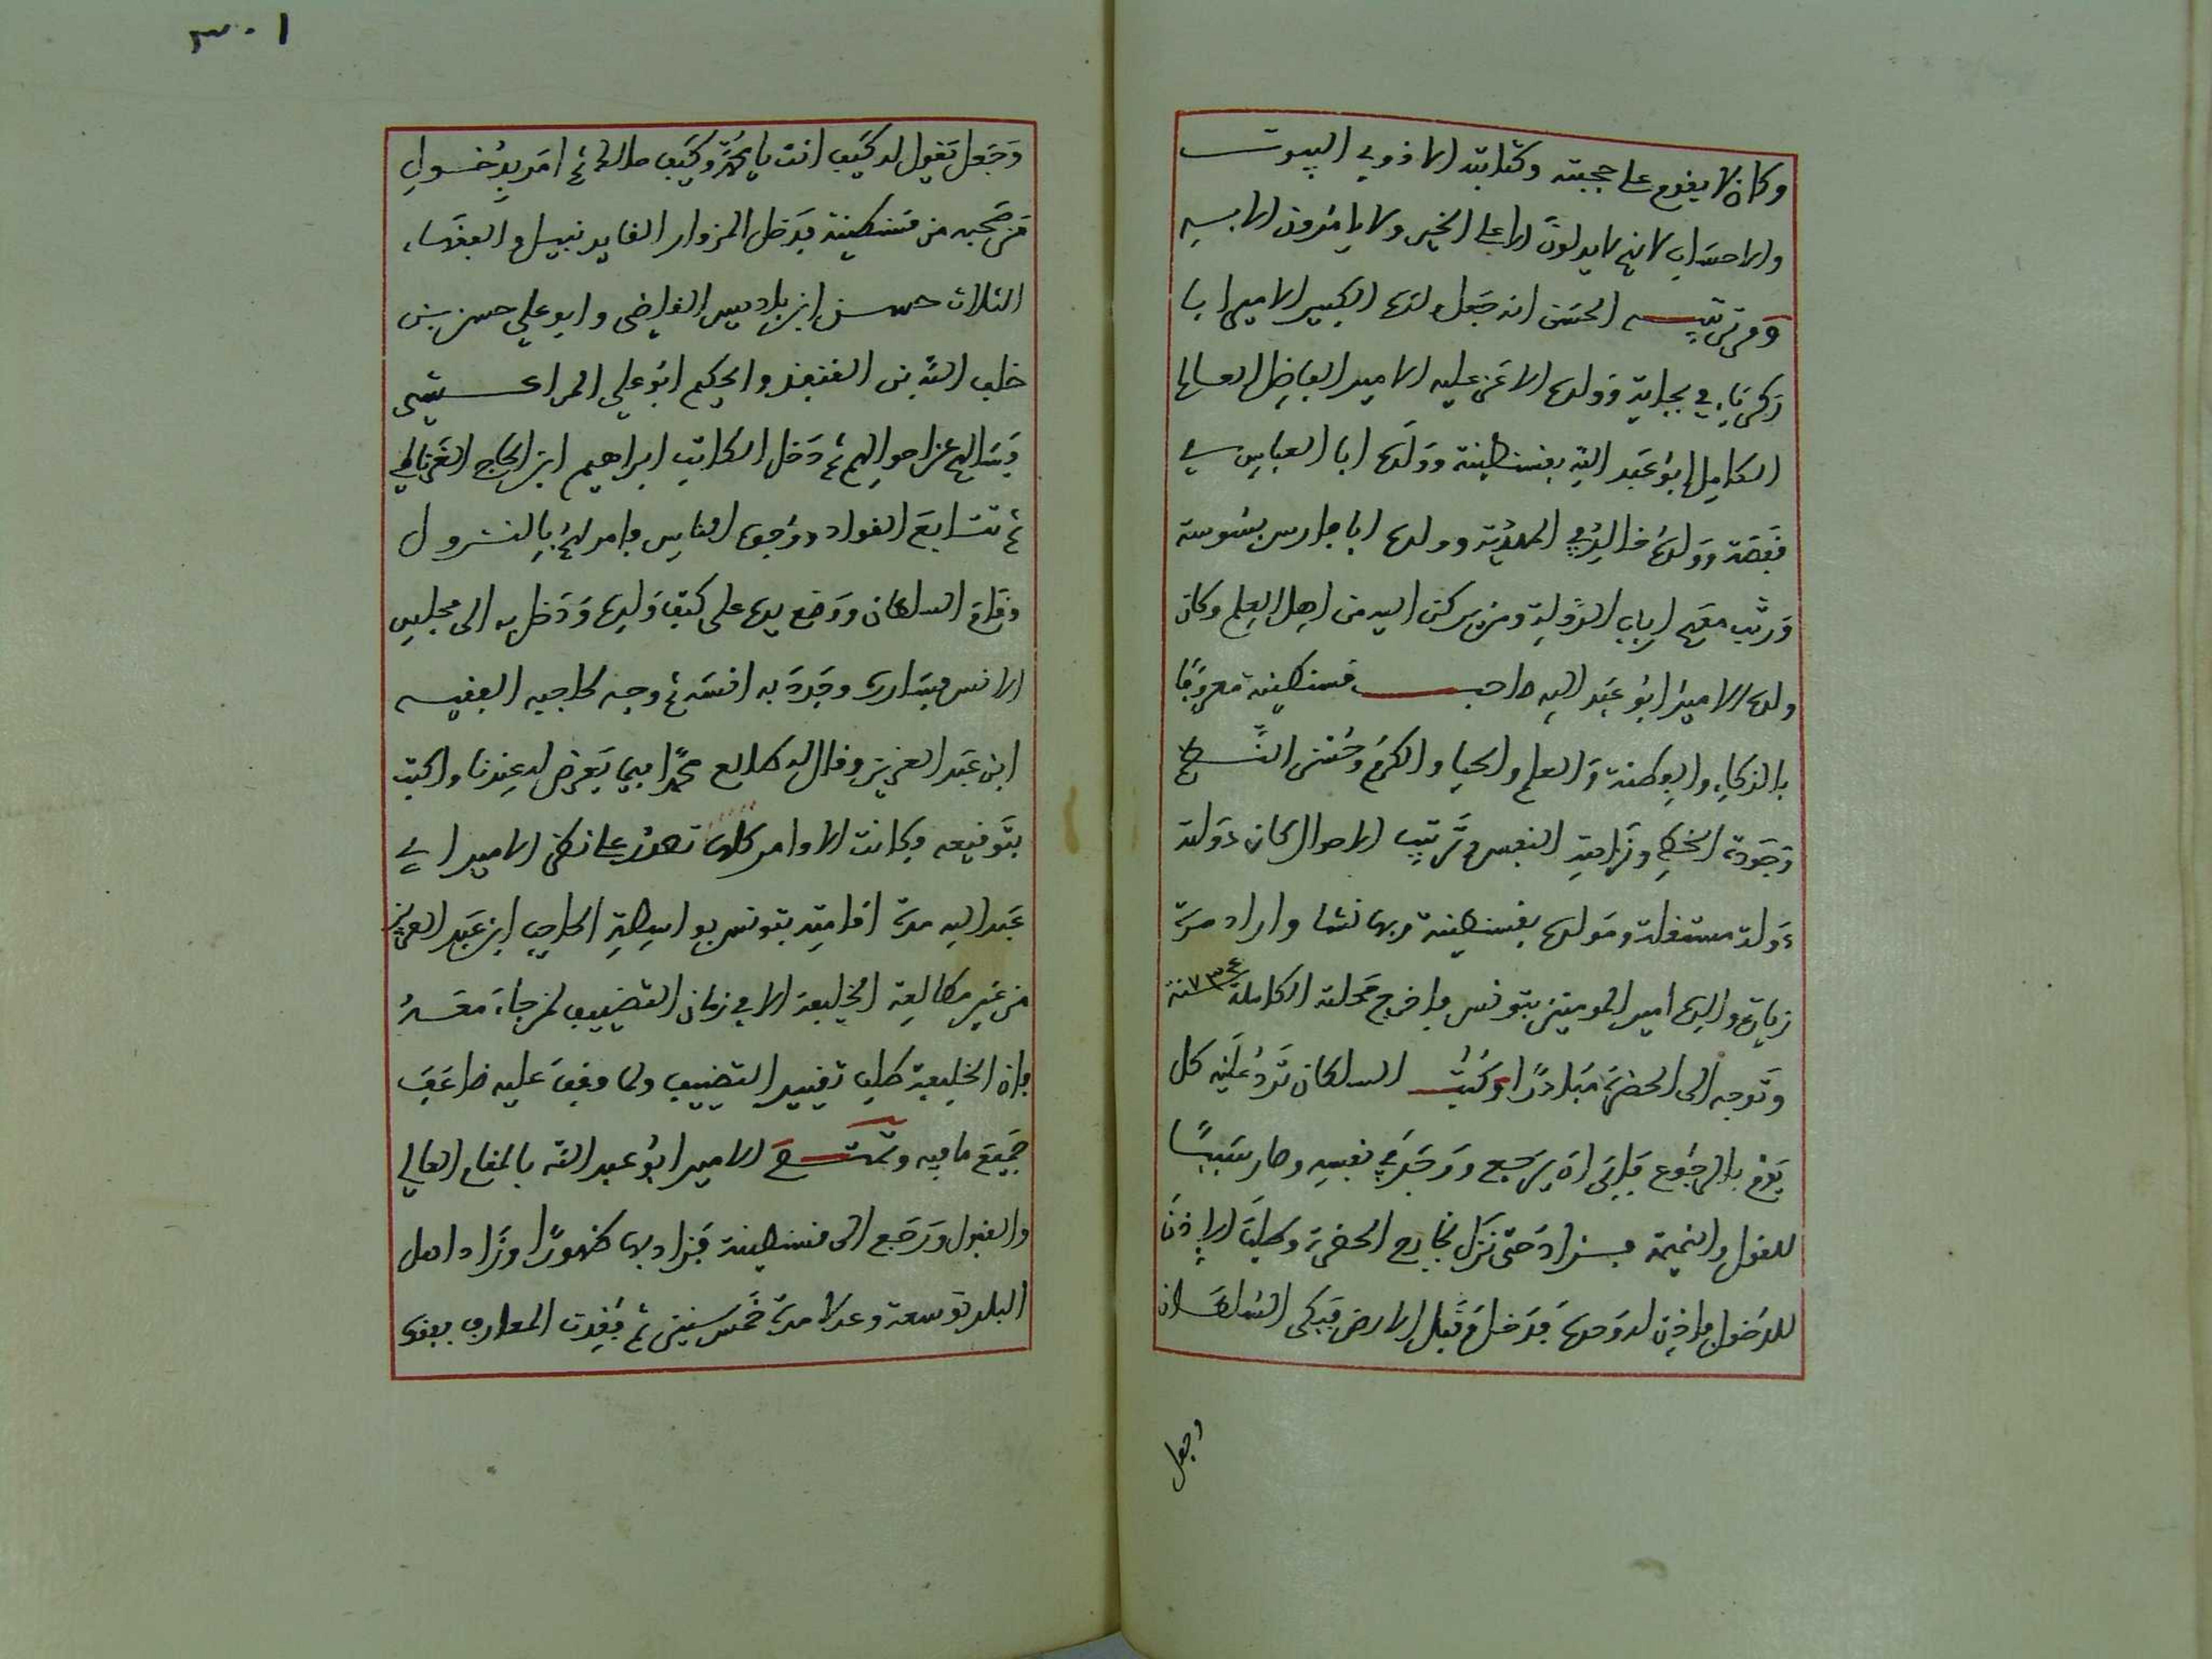 وكان لا يقدم على حجبته وكتابته الا ذوي البيوت
والاحساب لانهم لا يدلون الا على الخير ولا يامرون الا به
ومن ترتيبه الحسن انه جعل ولده الكبير الامير ابا
زكرياء في بجاية وولده الاعز عليه الامير الفاضل العالم
الكامل ابو عبد الله بقسنطينة وولده ابا العباس في
قفصة وولده خالد في المهدية وولده ابا فارس بسوسة
ورتب معهم ارباب الدولة ومن يركن اليه من اهل العلم وكان
ولده الامير ابو عبد الله صاحب قسنطينة معروفا
بالذكاء والفطنة والعلم والحياء والكرم وحسن
وجودة الخط ونزاهة النفس وترتيب الاحوال كان دولته
دولة مستقلة ومولده بقسنطينة وبها نشا واراد مرة
زيارة والده امير المومنين بتونس فاخرج محلته الكاملة سنة ٧٣٤
وتوجه الى الحضرة مبادرا وكتب السلطان ترد عليه كل
يوم بالرجوع فابى ان يرجع ووجد في نفسه وصار سببا
للقول والنميمة فزاد حتى نزل بخارج الحضرة وطلب الاذن
للدخول فاذن له وحده فدخل وقبل الارض فبكى السلطان
وجعل
٣٠١
وجعل يقول له كيف انت يا محمد وكيف حالك ثم امر بدخول
من صحبه من قسنطينة فدخل المزوار القايد نبيل والفقهاء
الثلاث حسن ابن باديس القاضي وابو علي حسن بن
خلف الله بن القنفذ والحكيم ابو علي المراكشي
فسالهم عن احوالهم ثم دخل الكاتب ابراهيم ابن الحاج الغرناطي
ثم تتابع القواد ووجوه الناس فامر لهم بالنزول
وقام السلطان ووضع يده على كتف ولده ودخل به الى مجلس
الانس فساره وجدد به انسه ثم وجه لحاجبه الفقيه
ابن عبد العزيز وقال له طالع محمدا فيما يعرض له عندنا واكتب
بتوقيعه وكانت الاوامر كلها تصدر على نظر الامير ابي
عبد الله مدة اقامته بتونس بواسطة الحاجب ابن عبد العزيز
من غير مطالعة الخليفة الا في زمان التضييف لمن جاء معه
فان الخليفة طلب تقييد التضييف ولما وقف عليه ضاعف
جميع ما فيه وتمتع الامير ابو عبد الله بالمقام العالي
والقبول ورجع الى قسنطينة فزاد بها ظهورا وزاد اهل
البلد توسعة وعدلا مدة خمس سنين ثم فقدت المعارف بفقده